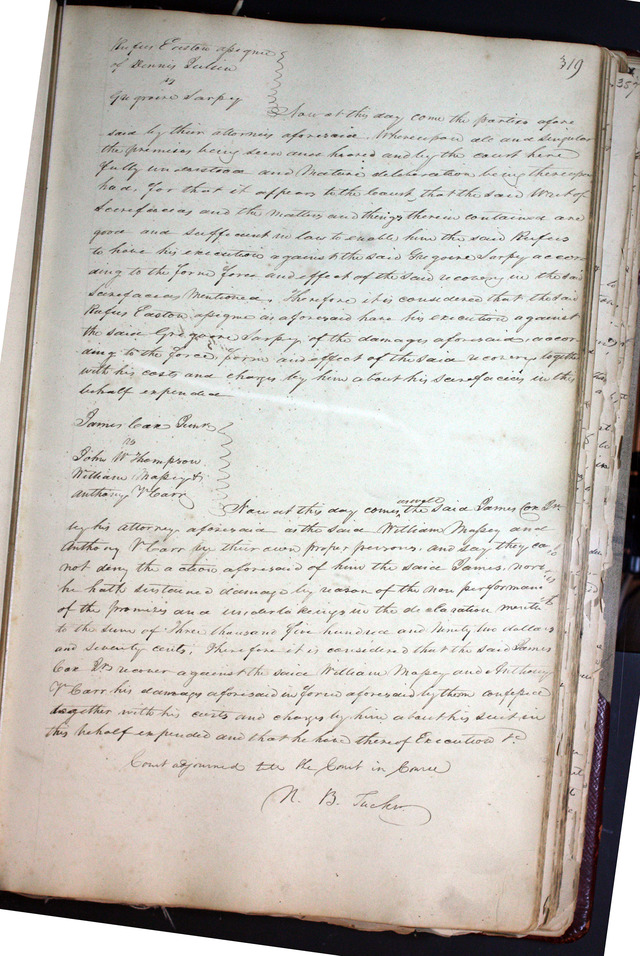 319
Rufus Easton assignee
of Dennis Julien
vs
Gregoire Sarpy
Now at this day come the parties afore
said by their attornies aforesaid. Whereupon all and singular
the premises being seen and heard and by the court here
fully understood and Mature deliberation being thereupon
had, for that it appears to the Court, that the said Writ of
Scirefacias and the Matters and things therein contained are
good and sufficient in law to enable him the said Rufus
to have his execution against the said Gregoire Sarpy accor
ding to the form force and effect of the said recovery in the said
Scirefacias Mentioned. Therefore it is considered that the said
Rufus Easton assignee as aforesaid have his execution against
the said Gregoire Sarpy of the damages aforesaid, accor
ding to the force, form and effect of the said recovery together
with his costs and charges by him about his scirefacias in this
behalf expended
James Cox Junr
vs
John W Thompson
William Massey &
Anthony V Carr
Now at this day comes as well the said James Cox Jr
by his attorney aforesaid as the said William Massey and
Anthony V Carr in their own proper persons, and say they ca
not deny the action aforesaid of him the said James, nor
he hath sustained damage by reason of the non performan
of the promises and undertakings in the declaration menti
to the sum of Three thousand five hundred and Ninety two dollars
and seventy cents; Therefore it is considered that the said James
Cox Jr recover against the said William Massey and Anthony
V Carr his damages aforesaid in form aforesaid by them confessed
together with his costs and charges by him about his suit in
this behalf expended and that he have thereof Execution &c
Court adjourned till the Court in Course
N. B. Tucker
357